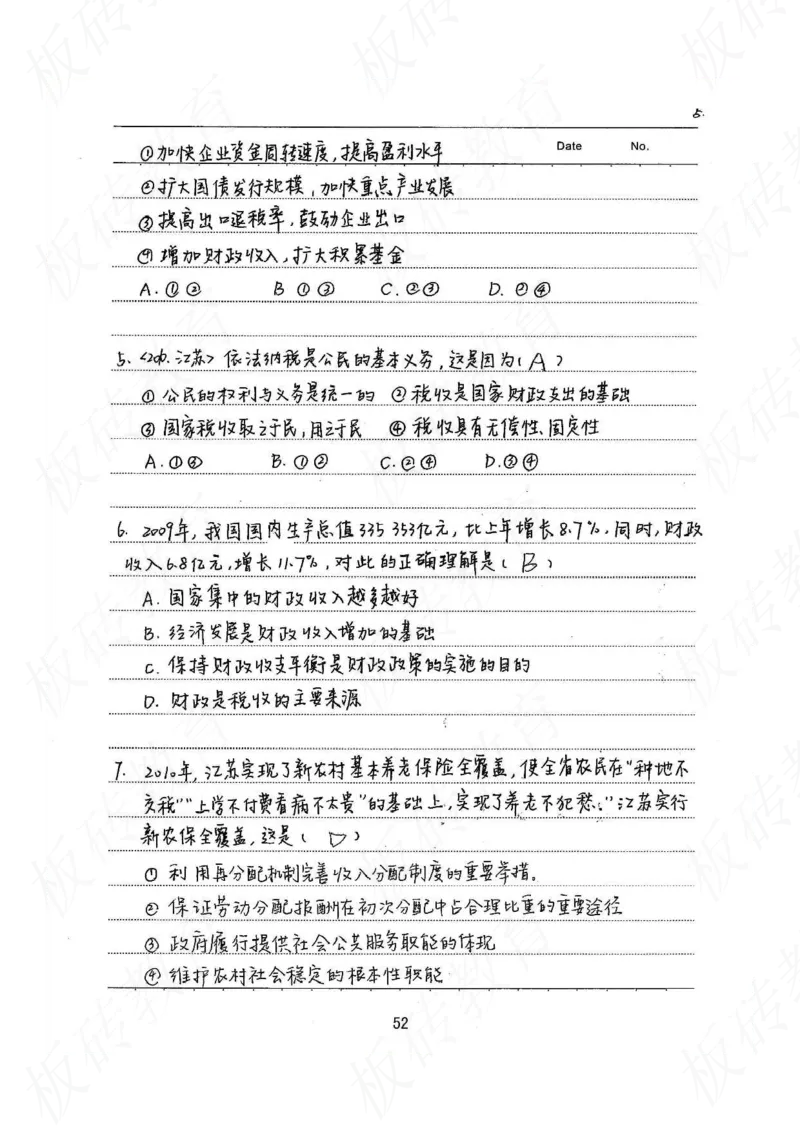 5.
Date No.
①加快企业资金周转速度,提高盈利水平
②扩大国债发行规模,加快重点产业发展
③提高出口退税率,鼓励企业出口
④增加财政收入,扩大积累基金
A.①② B ①③ C.②③ D.②④
5、<2010.江苏> 依法纳税是公民的基本义务,这是因为(A)
①公民的权利与义务是统一的 ②税收是国家财政支出的基础
③国家税收取之于民,用之于民 ④税收具有无偿性、固定性
A.①③ B.①② C.②④ D.③④
6. 2009年,我国国内生产总值335 353亿元,比上年增长8.7%.同时,财政
收入6.8亿元,增长11.7%,对此的正确理解是(B)
A.国家集中的财政收入越多越好
B.经济发展是财政收入增加的基础
C.保持财政收支平衡是财政政策的实施的目的
D.财政是税收的主要来源
7. 2010年,江苏实现了新农村基本养老保险全覆盖,使全省农民在“种地不
交税”“上学不付费看病不太贵”的基础上,实现了养老不犯愁.”江苏实行
新农保全覆盖,这是(D)
①利用再分配机制完善收入分配制度的重要举措。
②保证劳动分配报酬在初次分配中占合理比重的重要途径
③政府履行提供社会公共服务职能的体现
④维护农村社会稳定的根本性职能
52
板砖教育